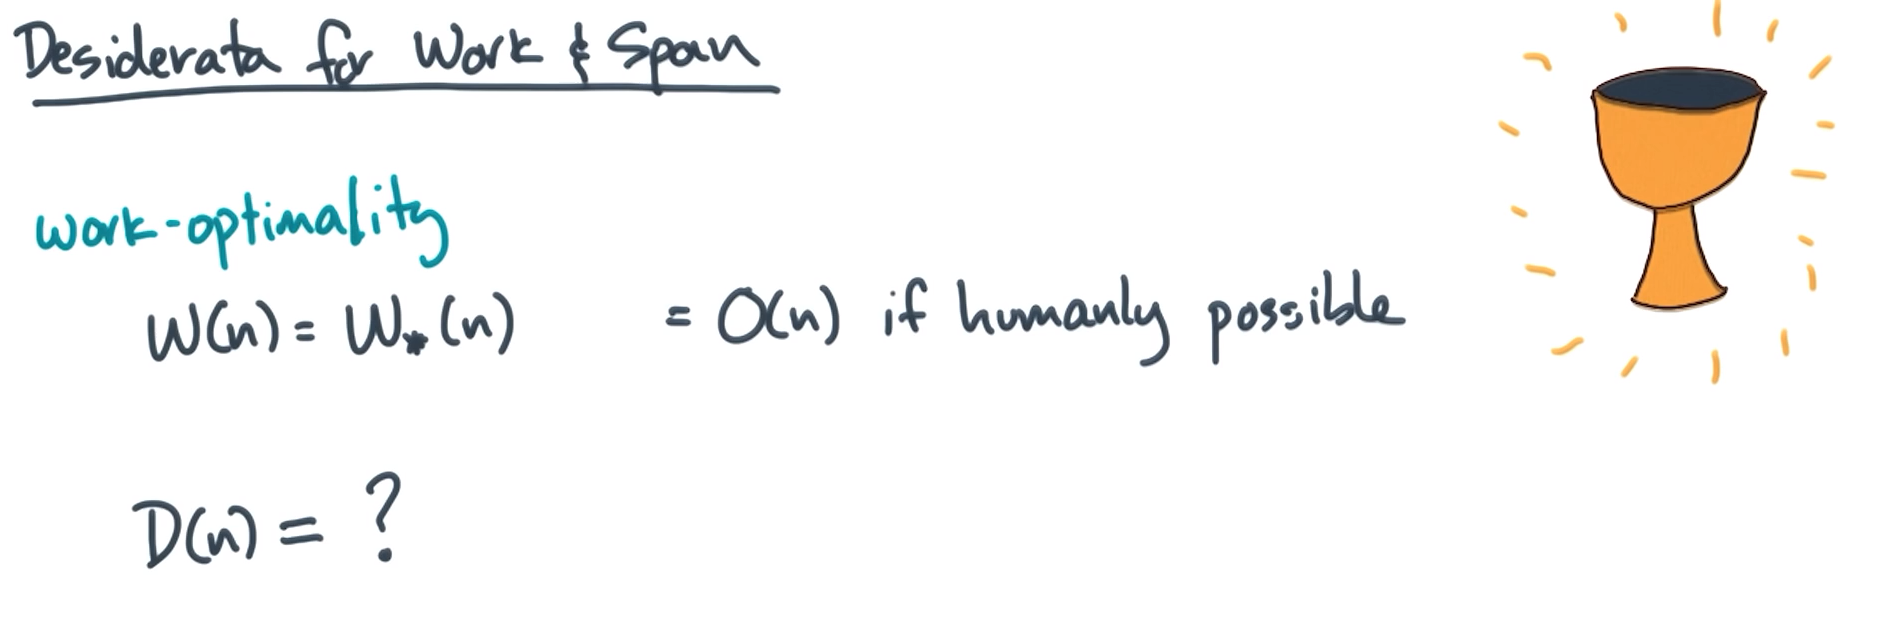 Desiderata for Work & Span
work-optimality
W(n) = W*(n) = O(n) if humanly possible
D(n) = ?